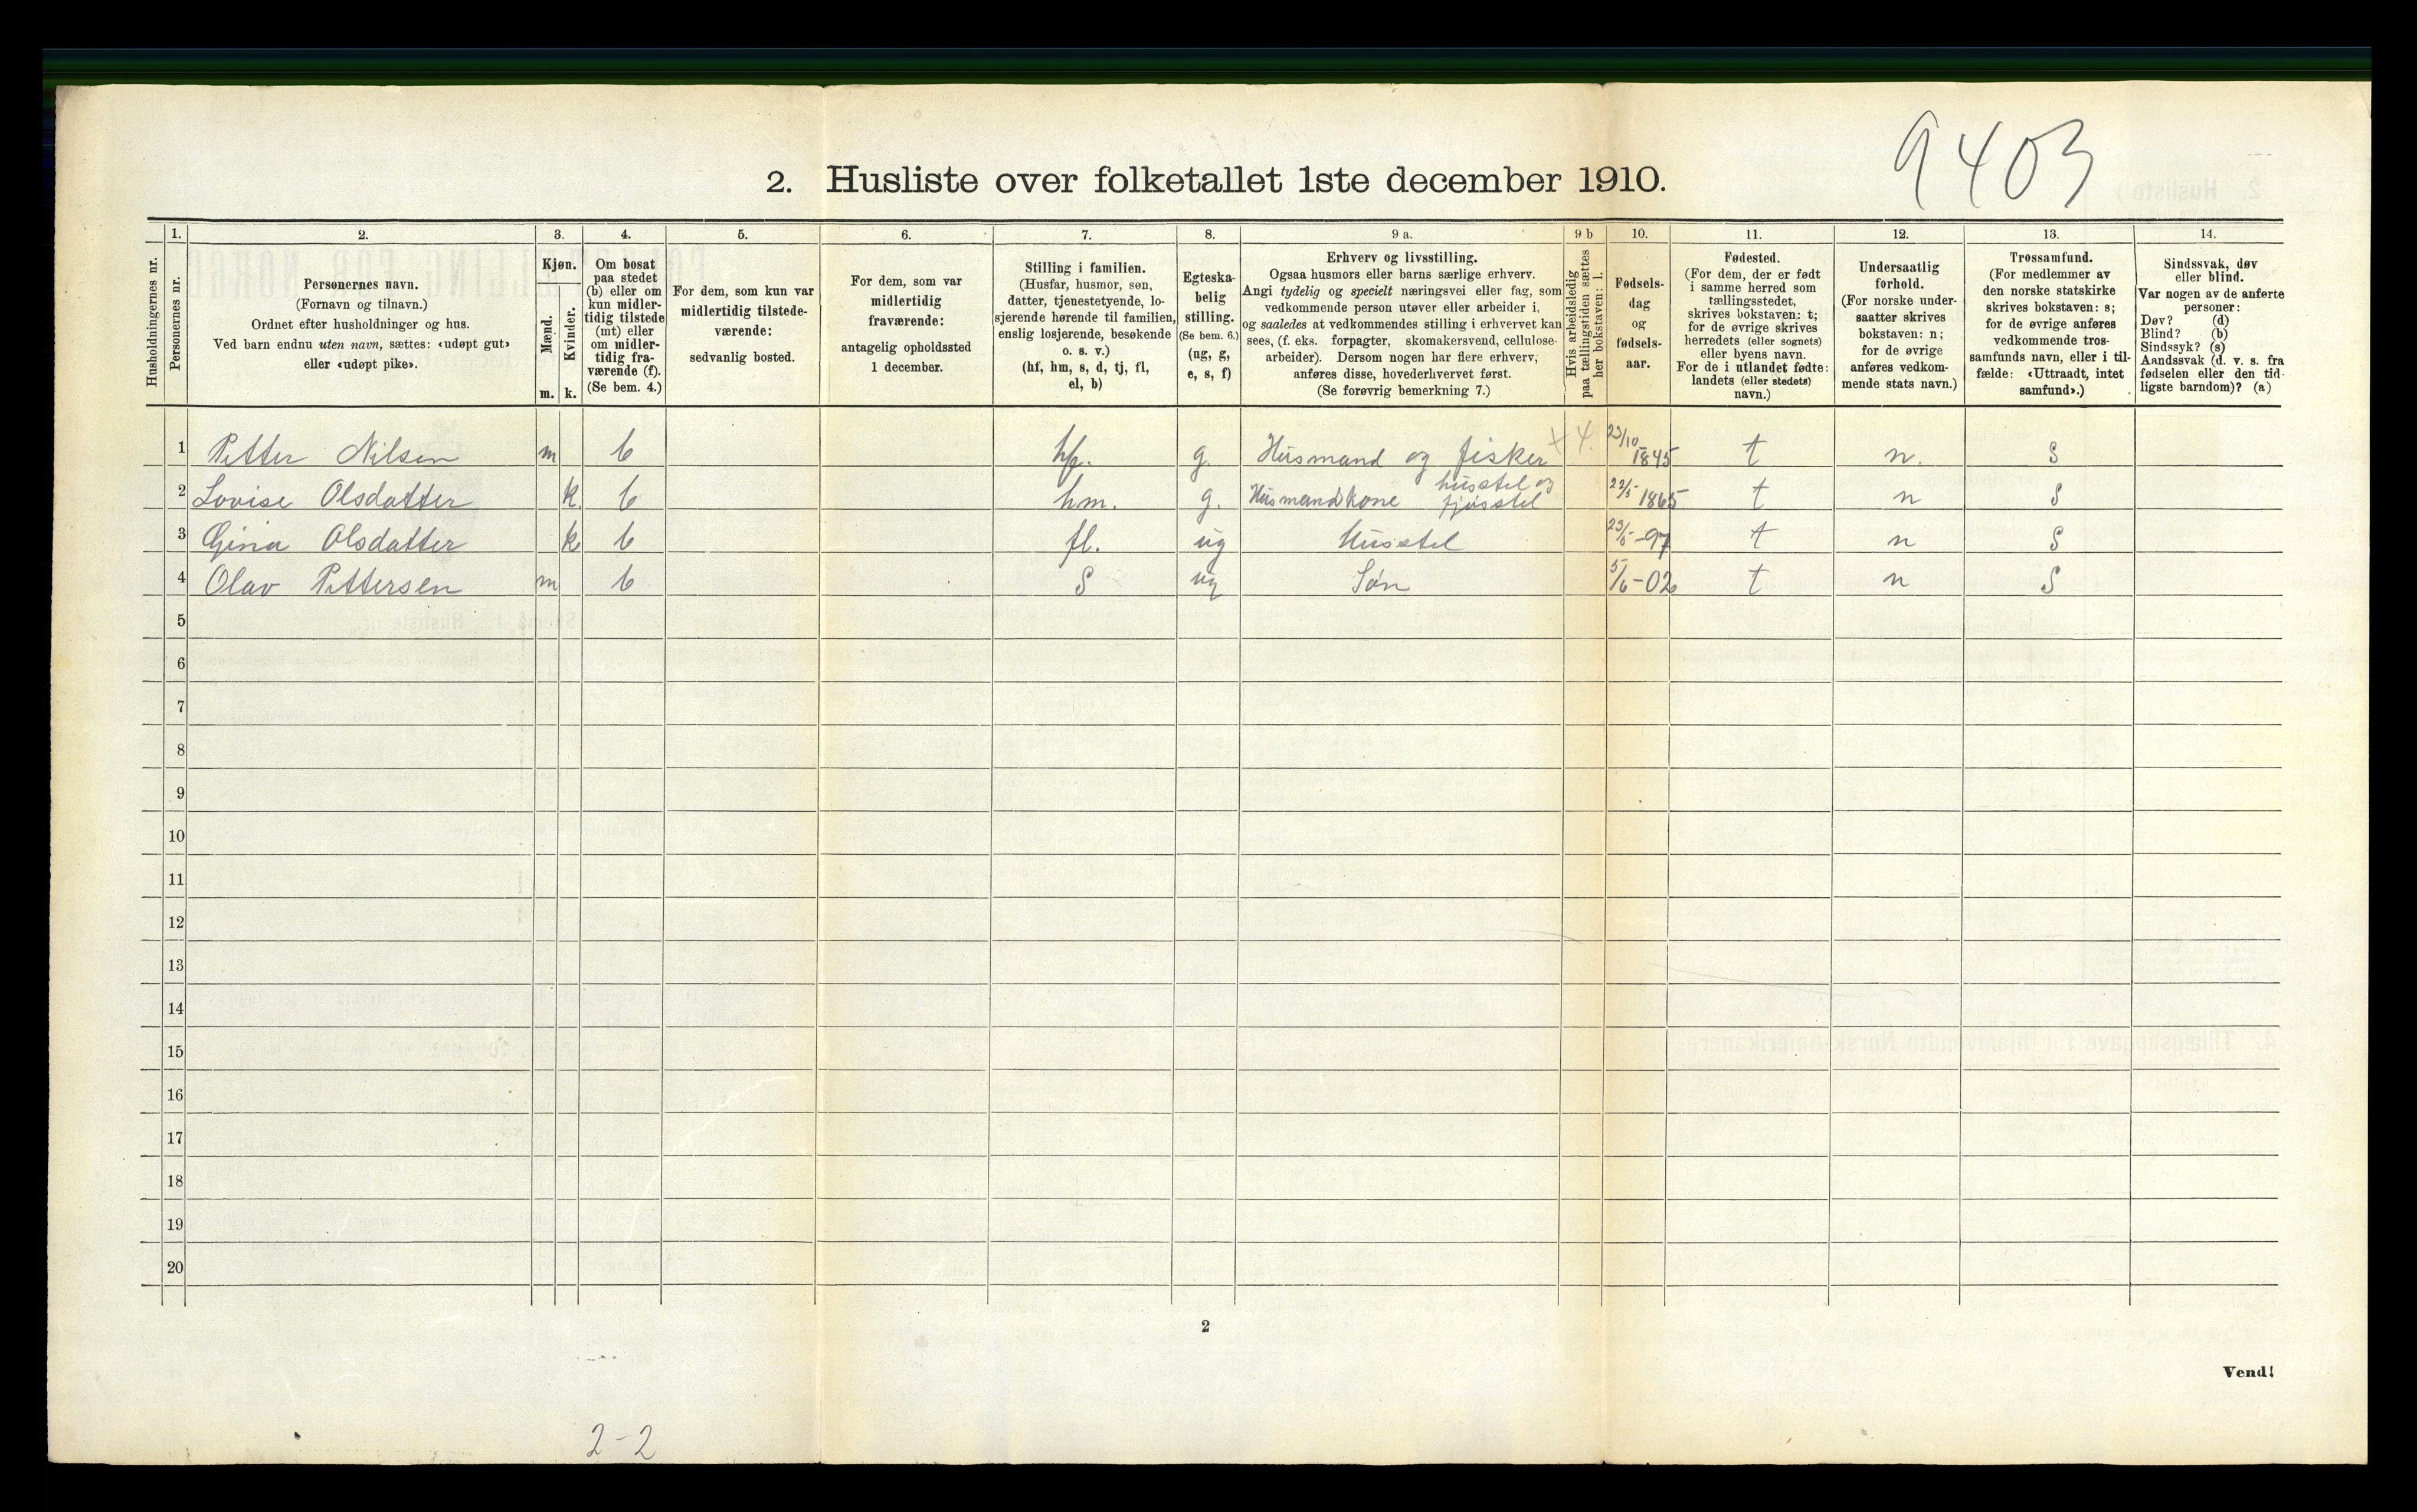 9403
2. Husliste over folketallet 1ste december 1910.
Husholdningernes nr.
1.
Personernes nr.
2.
Personernes navn.
(Fornavn og tilnavn.)
Ordnet efter husholdninger og hus.
Ved barn endnu uten navn, sættes: «udøpt gut»
eller «udøpt pike».
3.
Kjøn.
Mænd.
Kvinder.
m. k.
4.
Om bosat
paa stedet
(b) eller om
kun midler-
tidig tilstede
(mt) eller
om midler-
tidig fra-
værende (f).
(Se bem. 4.)
5.
For dem, som kun var
midlertidig tilstede-
værende:
sedvanlig bosted.
6.
For dem, som var
midlertidig
fraværende:
antagelig opholdssted
1 december.
7.
Stilling i familien.
(Husfar, husmor, søn,
datter, tjenestetyende, lo-
sjerende hørende til familien,
enslig losjerende, besøkende
o. s. v.)
(hf, hm, s, d, tj, fl,
el, b)
8.
Egteska-
belig
stilling.
(Se bem. 6.)
(ug, g,
e, s, f)
9 a.
Erhverv og livsstilling.
Ogsaa husmors eller barns særlige erhverv.
Angi tydelig og specielt næringsvei eller fag, som
vedkommende person utøver eller arbeider i,
og saaledes at vedkommendes stilling i erhvervet kan
sees, (f. eks. forpagter, skomakersvend, cellulose-
arbeider). Dersom nogen har flere erhverv,
anføres disse, hovederhvervet først.
(Se forøvrig bemerkning 7.)
9 b
Hvis arbeidsledig
paa tællingstiden sættes
her bokstaven: l.
10.
Fødsels-
dag
og
fødsels-
aar.
11.
Fødested.
(For dem, der er født
i samme herred som
tællingsstedet,
skrives bokstaven: t;
for de øvrige skrives
herredets (eller sognets)
eller byens navn.
For de i utlandet fødte:
landets (eller stedets)
navn.)
12.
Undersaatlig
forhold.
(For norske under-
saatter skrives
bokstaven: n;
for de øvrige
anføres vedkom-
mende stats navn.)
13.
Trossamfund.
(For medlemmer av
den norske statskirke
skrives bokstaven: s;
for de øvrige anføres
vedkommende tros-
samfunds navn, eller i til-
fælde: «Uttraadt, intet
samfund».)
14.
Sindssvak, døv
eller blind.
Var nogen av de anførte
personer:
Døv? (d)
Blind? (b)
Sindssyk? (s)
Aandssvak (d. v. s. fra
fødselen eller den tid-
ligste barndom)? (a)
1 Petter Nilsen m b hf. g. Husmand og fisker + 4. 23/10 1845 t n. s
2 Lovise Olsdatter k b hm. g. Husmandkone husstel og fjøsstel 22/5 1865 t n s
3 Gina Olsdatter k b fl. ug Husstel 23/5 -97 t n s
4 Olav Pettersen m b s ug Søn 5/6 -02 t n s
5
6
7
8
9
10
11
12
13
14
15
16
17
18
19
20
2
Vend!
2-2